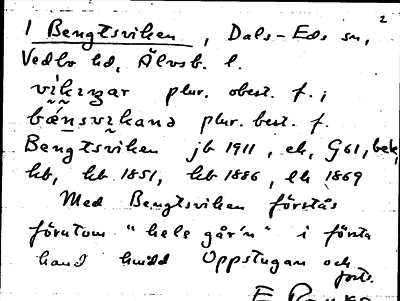 2
1 Bengtsviken, Dals-Eds sn,
Vedbo hd, Älvsb. l.
vikingar plur. obest. f.;
bænsvikana plur. best. f.
Bengtsviken jb 1911, ek, G61, bek,
hb, kb 1851, kb 1886, lk 1869
Med Bengtsviken förstås
förutom "hele går'n" i första
hand huvud Oppstugan och
forts.
E